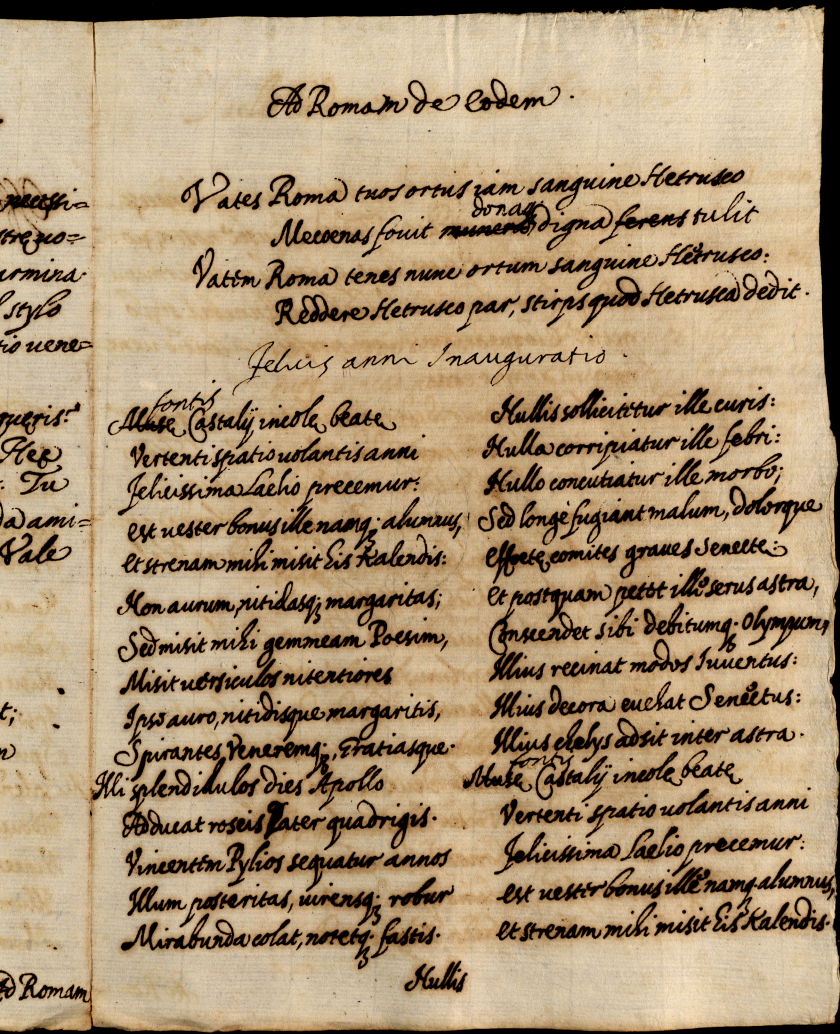 necessi=
stre uo=
carmina
l stylo
tio uene=
queris:
Hec
: Tu
da ami=
Vale
t;
Ad Romam
Ad Romam de Eodem.
Vates Roma tuos ortus iam sanguine Hetrusco
donaq;
Mecoenas fouit munera, digna ferens tulit
Vatem Roma tenes nunc ortum sanguine Hetrusco:
Reddere Hetrusco par, stirps quod Hetrusca dedit.
Felicis anni Inauguratio.
fontis
Musae Castalij incolae beatae
Vertenti spatio uolantis anni
Felicissima Laelio precemur:
Est uester bonus ille namq; alumnus,
Et strenam mihi misit his Kalendis:
Non aurum, nitidasq; margaritas;
Sed misit mihi gemmeam Poesim,
Misit uersiculos nitentiores
Ipso auro, nitidisque margaritis,
Spirantes Veneremq;, Gratiasque.
Illi splendidulos dies Apollo
Adducat roseis Pater quadrigis.
Vincentem Pylios sequatur annos
Illum posteritas, uirensq; robur
Mirabunda colat, notetq; fastis.
Nullis
Nullis sollicitetur ille curis:
Nulla corripiatur ille febri:
Nullo concutiatur ille morbo;
Sed longè fugiant malum, dolorque
Effoetae comites graues Senectae:
Et postquam petet ille serus astra,
Conscendet sibi debitumq; Olympum,
Illius recinat modos Iuuentus:
Illius decora euehat Senectus:
Illius chelys adsit inter astra.
fontis
Musae Castalij incolae beatae
Vertenti spatio uolantis anni
Felicissima Laelio precemur:
Est uester bonus ille namq; alumnus,
Et strenam mihi misit his Kalendis.